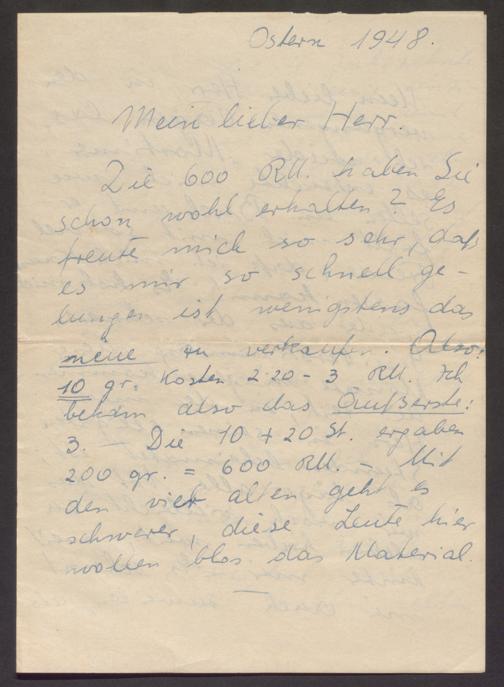 Ostern 1948.
Mein lieber Herr.
Die 600 RM. haben Sie
schon wohl erhalten? Es
freute mich so sehr, daß
es mir so schnell ge-
lungen ist wenigstens das
neue zu verkaufen. Also:
10 gr. kosten 2.20 - 3 RM. Ich
bekam also das Äußerste:
3. — Die 10 + 20 St. ergaben
200 gr. = 600 RM. — Mit
den vier alten geht es
schwerer, diese Leute hier
wollen blos das Material.
—